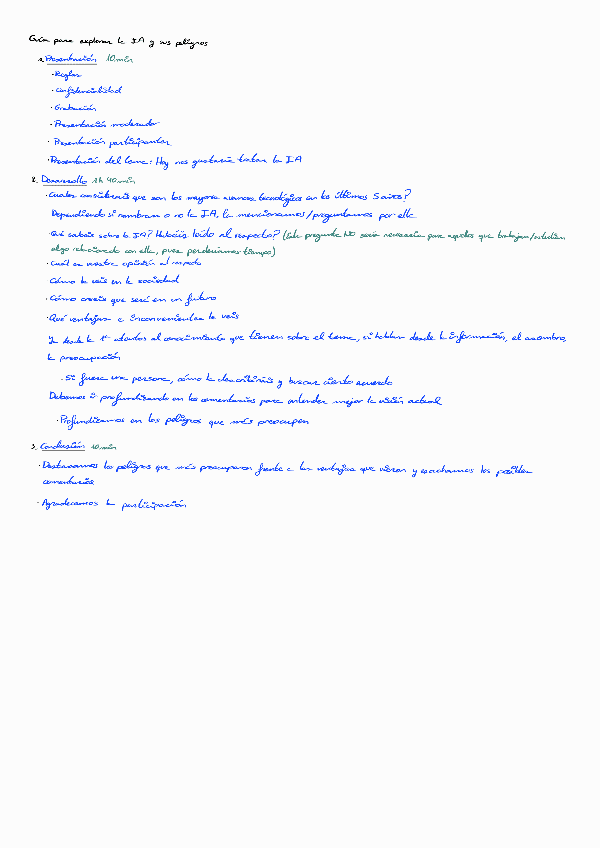 Guía para explorar la IA y sus peligros
1. Presentación 10 min
· Reglas
· Confidencialidad
· Grabación
· Presentación moderador
· Presentación participantes
· Presentación del tema: Hoy nos gustaría tratar la IA
2. Desarrollo 1h 40 min
· Cuales consideráis que son los mayores avances tecnológicos en los últimos 5 años?
Dependiendo si nombran o no la IA, la mencionamos/preguntamos por ella
· Qué sabéis sobre la IA? Habéis leído al respecto? (Esta pregunta NO sería necesaria para aquellos que trabajan/estudien
algo relacionado con ella, pues perderíamos tiempo)
· Cuál es vuestra opinión al respecto
Cómo la veis en la sociedad
· Cómo creéis que será en un futuro
· Qué ventajas e inconvenientes le veis
desde la 1ª atentos al conocimiento que tienen sobre el tema, si hablan desde la información, el asombro,
la preocupación
· Si fuera una persona, cómo la describiríais y buscar cierto acuerdo
Debemos ir profundizando en los comentarios para entender mejor la visión actual
· Profundizamos en los peligros que más preocupen
3. Conclusión 10 min
· Destacamos los peligros que más preocuparon frente a las ventajas que vieron y escuchamos los posibles
comentarios
· Agradecemos la participación